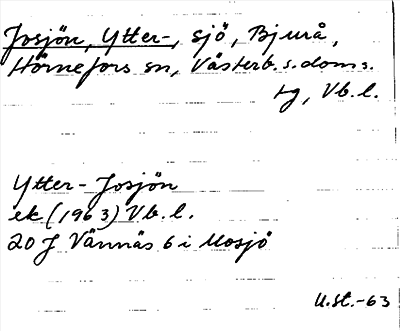 Josjön, Ytter-, sjö, Bjurå,
Hörnefors sn, Västerb. s. doms.
tg, Vb. l.
Ytter-Josjön
ek (1963) Vb. l.
20 J Vännäs 6 i Mosjö
U.st.-63